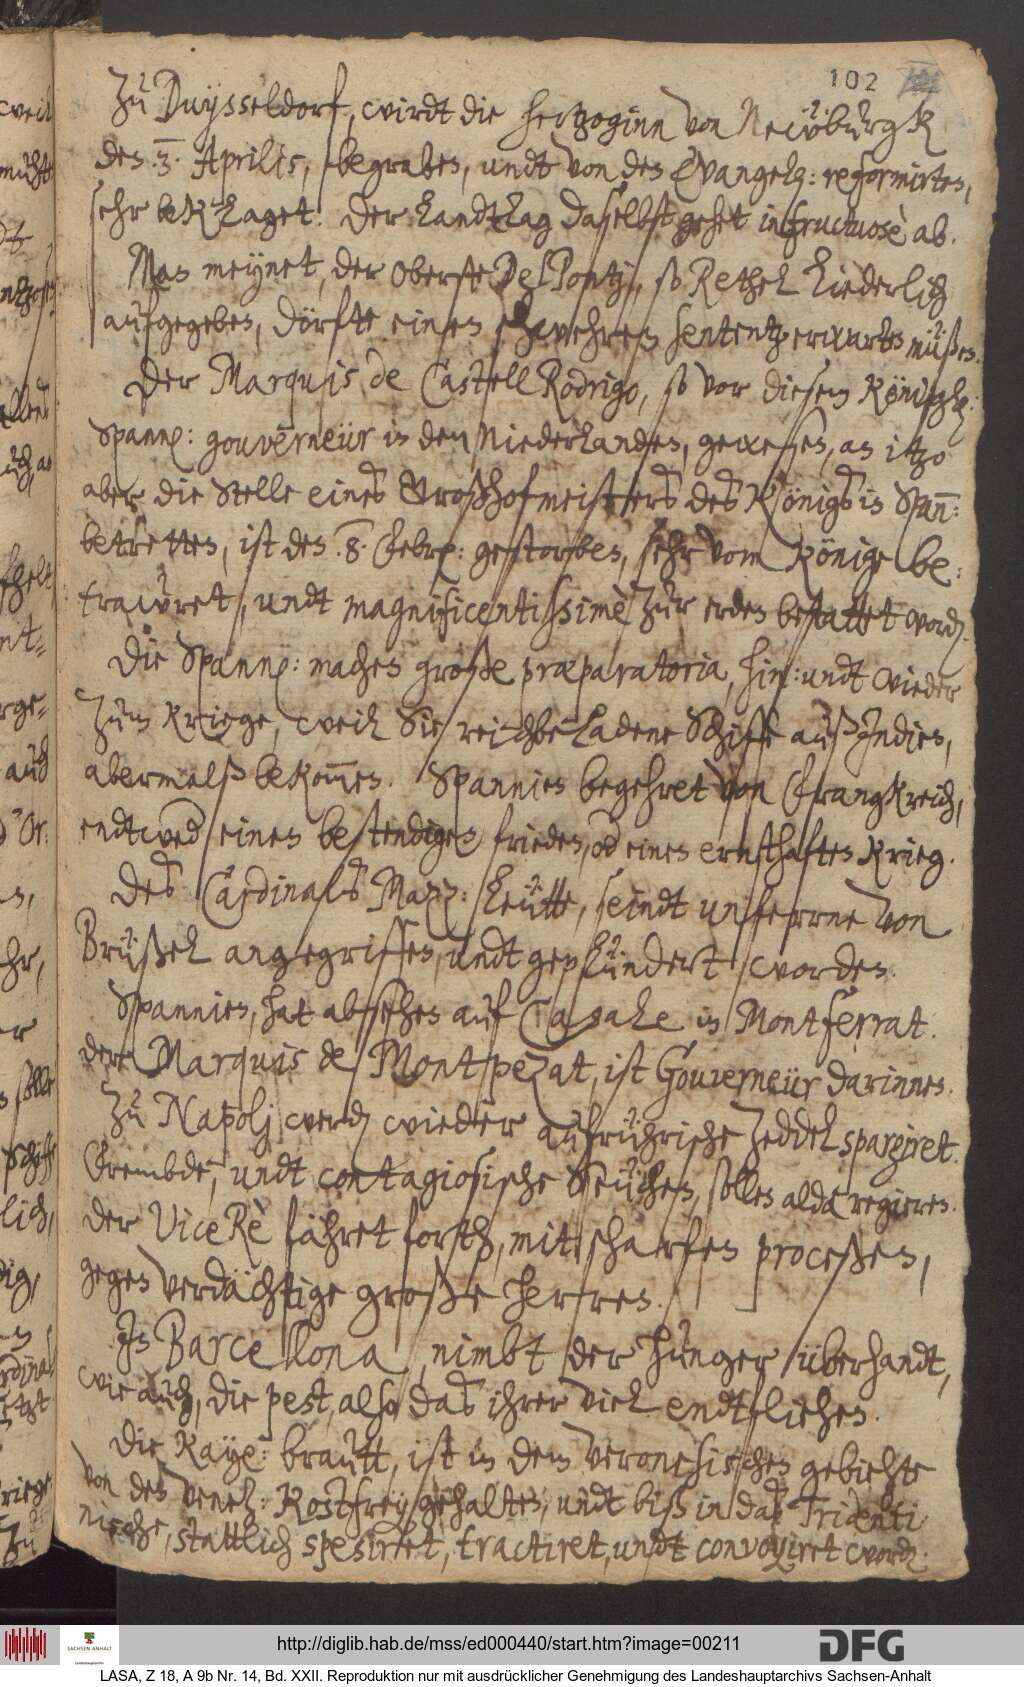 102
Zu Duysseldorf, wirdt die hertzoginn von Neuburgk
den 3. Aprilis, begraben, undt von den Evangel: reformirten,
sehr beklaget. Der Landtag daselbst gehet infructuosè ab.
Man meynet, der Oberste Del Pontj, so Rethel liederlich
aufgegeben, dörfte einen schwehren sententz erwarten müßen.
Der Marquis de Castell Rodrigo, so vor diesem Königl:
Spann: gouverneur in den Niederlanden, gewesen, an itzo
aber die Stelle eines Großhofmeisters des Königs in Spann:
betretten, ist den 8. Febr: gestorben, sehr vom Könige be-
trauret, undt magnificentissimè zur erden bestattet word.
Die Spann: machen große præparatoria, hin: undt wieder
zum kriege, weil Sie reichbeladene Schiffe auß Indien,
abermalß bekommen. Spannien begehret von Frangkreich,
endtwed einen bestendigen frieden, od einen ernsthaften Krieg.
Des Cardinals Maz: Leutte, seindt unferrne von
Brüßel angegriffen, undt geplündert worden.
Spannien, hat absehen auf Casale in Montferrat.
der Marquis de Montpezat, ist Gouverneur darinnen.
Zu Napolj, werd wieder aufrührische Zeddel spargiret.
Frembde, undt contagiosische Seuchen, sollen alda regieren.
Der Vice Rè fähret forth, mit scharfen proceßen,
gegen verdächtige große herren.
In Barcellona, nimbt der hunger überhandt,
wie auch, die pest, also das ihrer viel endtfliehen.
Die Kay: brautt, ist in dem Veronesischen gebiehte
von den Venet: Kostfrey gehalten, undt biß in das Tridenti
nische, stattlich spesiret, tractiret, undt convoyiret word.
http://diglib.hab.de/mss/ed000440/start.htm?image=00211
SACHSEN-ANHALT
DFG
LASA, Z 18, A 9b Nr. 14, Bd. XXII. Reproduktion nur mit ausdrücklicher Genehmigung des Landeshauptarchivs Sachsen-Anhalt